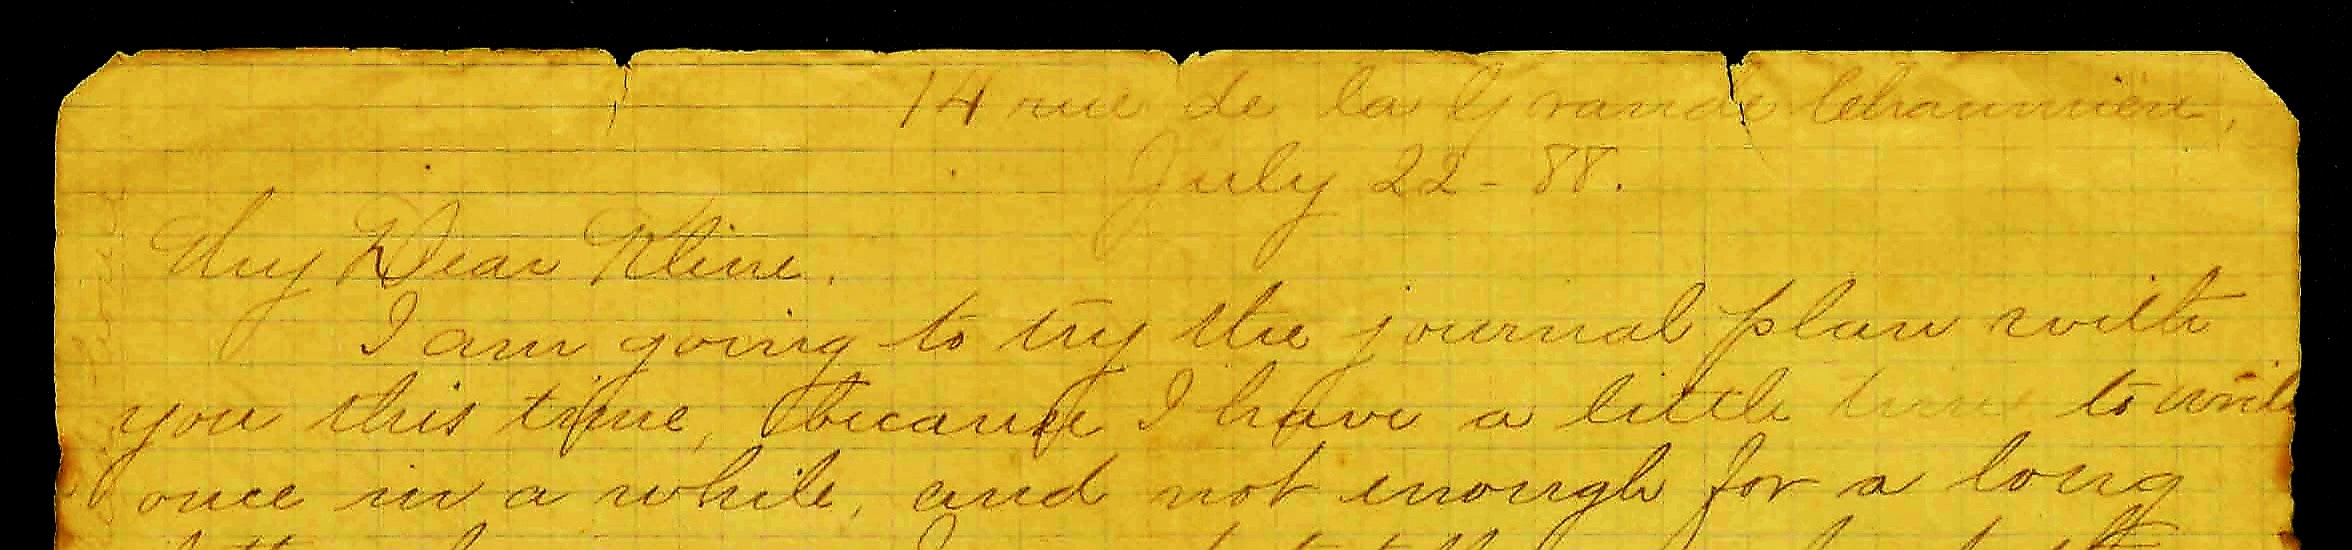 14 rue de la Grande Chaumière,
July 22 - 88.
My Dear Kline.
I am going to try the journal plan with
you this time, because I have a little time to write
once in a while, and not enough for a long